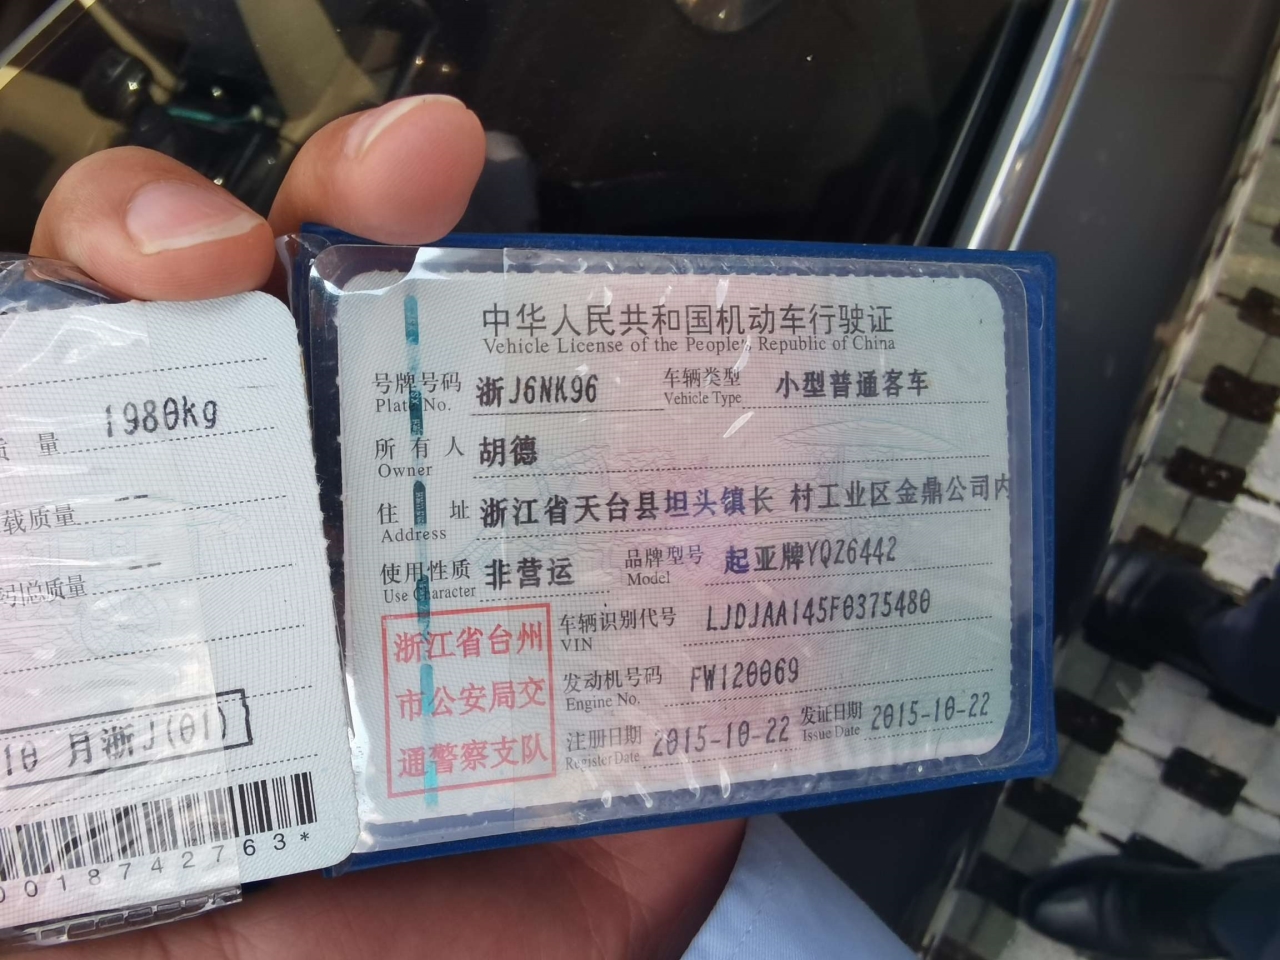 中华人民共和国机动车行驶证
Vehicle License of the People's Republic of China
号牌号码 浙J6NK96 车辆类型 小型普通客车
Plate No. Vehicle Type
所有人 胡德
Owner
住址 浙江省天台县坦头镇长 村工业区金鼎公司内
Address
使用性质 非营运 品牌型号 起亚牌YQZ6442
Use Character Model
浙江省台州
市公安局交
通警察支队
车辆识别代号 LJDJAA145F0375480
VIN
发动机号码 FW120069
Engine No.
注册日期 2015-10-22 发证日期 2015-10-22
Register Date Issue Date
质量 1980kg
载质量 --
引总质量 --
10 月浙J(01)
0018742763*